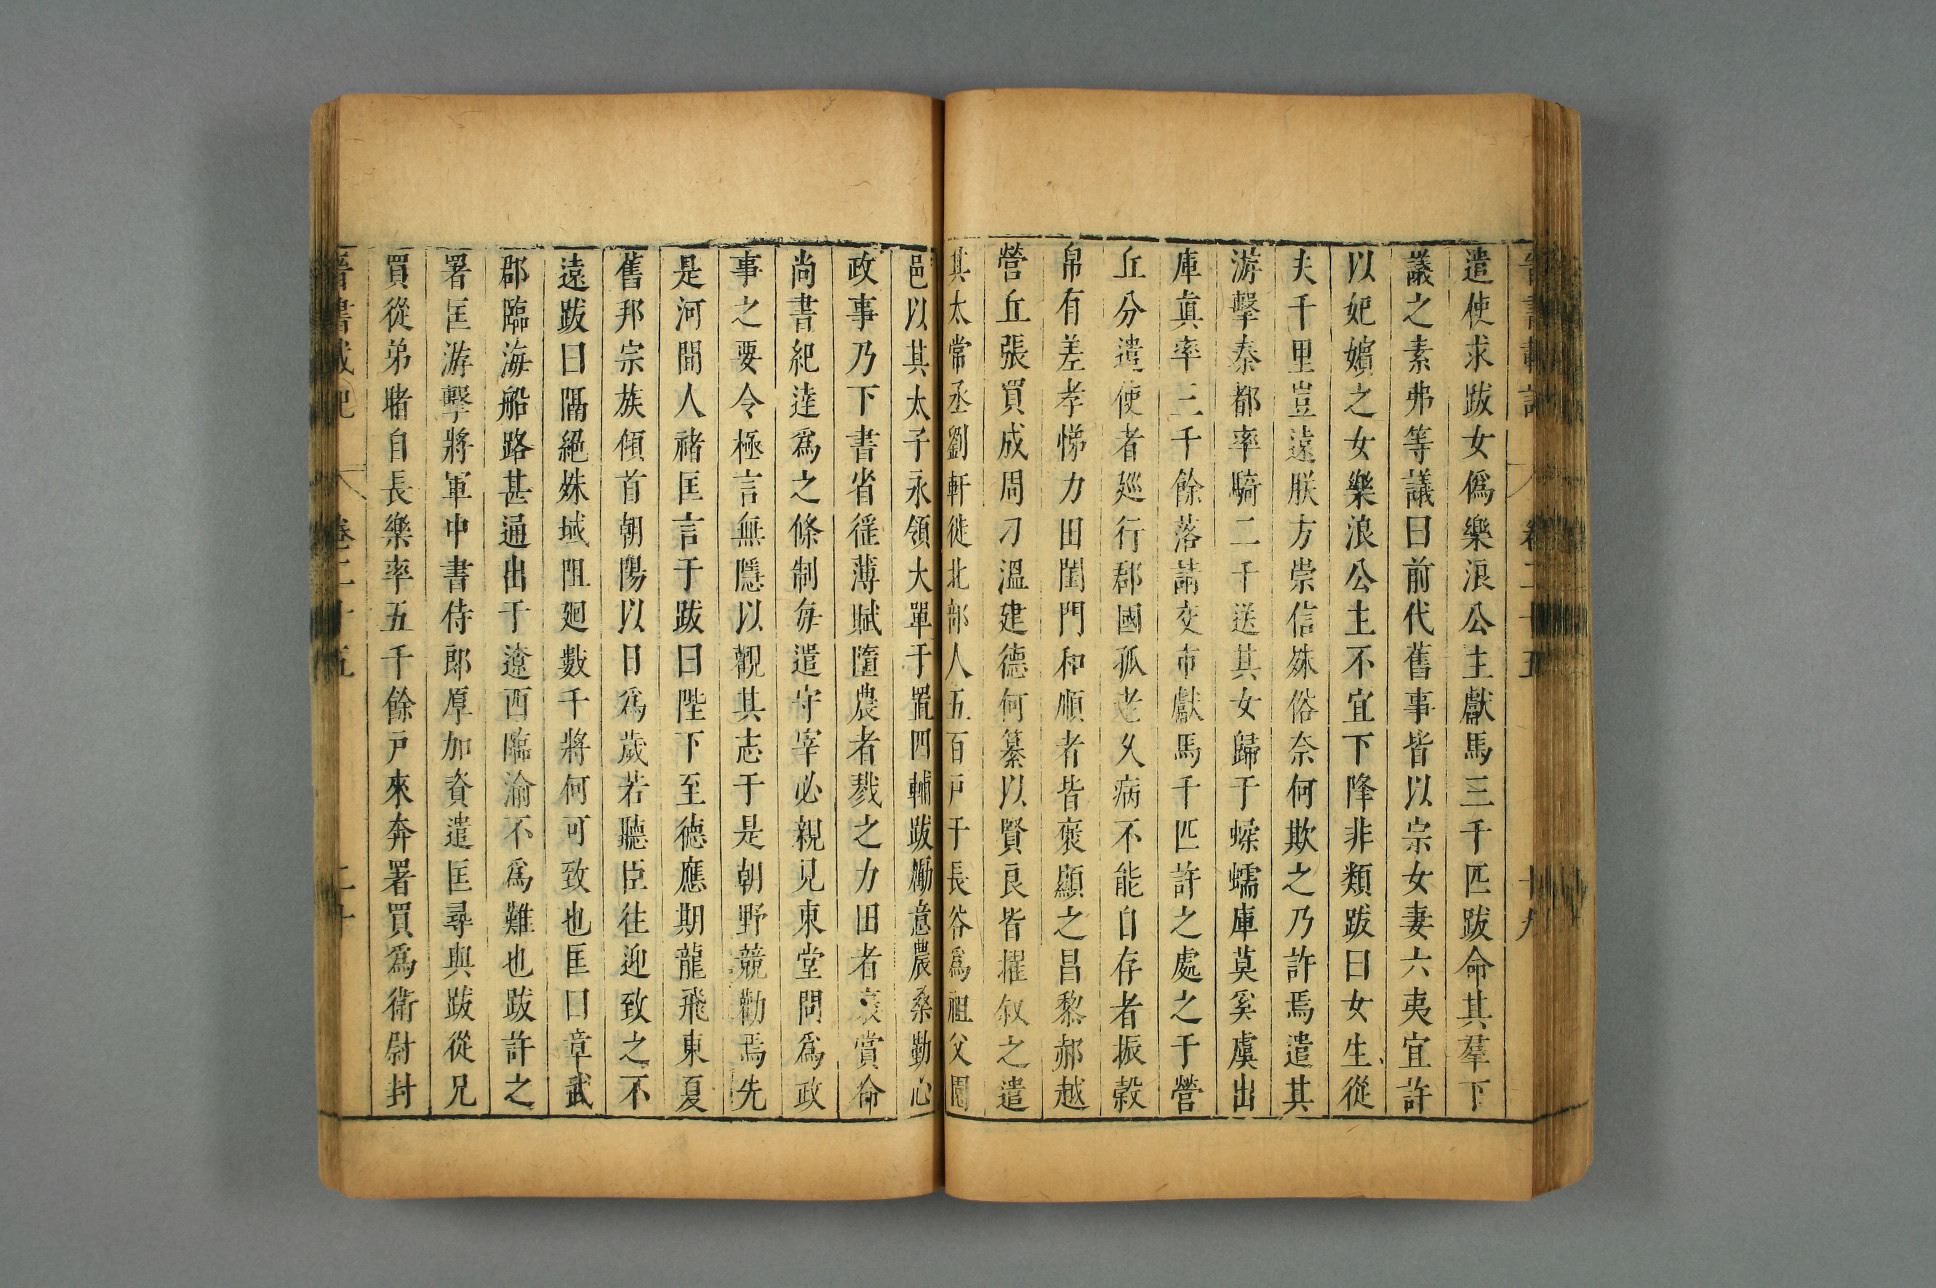 晉書載記 卷二十五 十九
遣使求跋女偽樂浪公主獻馬三千匹跋命其羣下
議之素弗等議曰前代舊事皆以宗女妻六夷宜許
以妃嬪之女樂浪公主不宜下降非類跋曰女生從
夫千里豈遠朕方崇信殊俗奈何欺之乃許焉遣其
游擊秦都率騎二千送其女歸于蝚蠕庫莫奚虞出
庫真率三千餘落請交市獻馬千匹許之處之于營
丘分遣使者廵行郡國孤老久病不能自存者振穀
帛有差孝悌力田閨門和順者皆褒顯之昌黎郝越
營丘張買成周刁溫建德何纂以賢良皆擢敘之遣
其太常丞劉軒徙北部人五百戸于長谷為祖父園
邑以其太子永領大單于置四輔跋勵意農桑勤心
政事乃下書省徭薄賦墮農者戮之力田者褒賞命
尚書紀達爲之條制每遣守宰必親見東堂問爲政
事之要令極言無隱以觀其志于是朝野競勸焉先
是河間人褚匡言于跋曰陛下至德應期龍飛東夏
舊邦宗族傾首朝陽以日爲歲若聽臣往迎致之不
遠跋曰隔絕殊域阻廻數千將何可致也匡曰章武
郡臨海船路甚通出于遼西臨渝不爲難也跋許之
署匡游擊將軍中書侍郎厚加資遣匡尋與跋從兄
買從弟睹自長樂率五千餘戸來奔署買爲衛尉封
晉書載記 卷二十五 二十